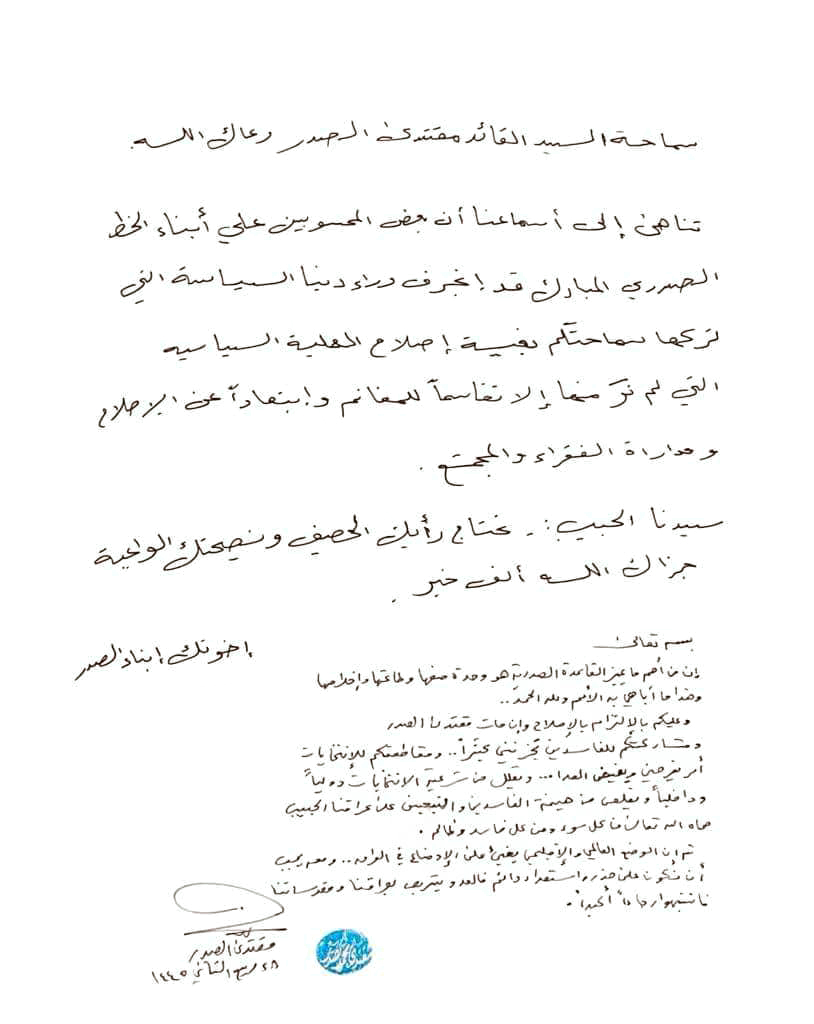 سماحة السيد القائد مقتدى الصدر رعاك الله.
تناهى إلى أسماعنا أن بعض المحسوبين على أبناء الخط
الصدري المبارك قد إنجرف وراء دنيا السياسة التي
تركها سماحتكم بغية إصلاح العملية السياسية
التي لم نرَ منها إلا تقاسماً للمغانم وإبتعاداً عن الإصلاح
ومداراة الفقراء والمجتمع .
سيدنا الحبيب :. نحتاج رأيك الحصيف ونصيحتك الواعية
جزاك الله ألف خير .
إخوتك إبناء الصدر
بسمه تعالى
إن من أهم ما يميز القاعدة الصدرية هو وحدة صفها وطاعتها وإخلاصها
وهذا ما أباهي به الأمم ولله الحمد ..
وعليكم بالإلتزام بالإصلاح وإن مات مقتدى الصدر
ومشاركتكم للفاسدين تحزنني كثيراً .. ومقاطعتكم للإنتخابات
أمر يفرحني ويغيض العدا ... ويقلل من شرعية الانتخابات دولياً
وداخلياً ويقلص من هيمنة الفاسدين والتبعيين على عراقنا الحبيب
حماه الله تعالى من كل سوء ومن كل فاسد وظالم .
ثم إن الوضع العالمي والإقليمي يغني على الإوضاع في العراق .. ومعه يجب
أن نكون على حذر وإستعداد دائم فالعدو يتربص بعراقنا ومقدساتنا
فانتبهوا رجاءاً أكيداً .
مقتدى الصدر
٢٨ ربيع الثاني ١٤٤٥